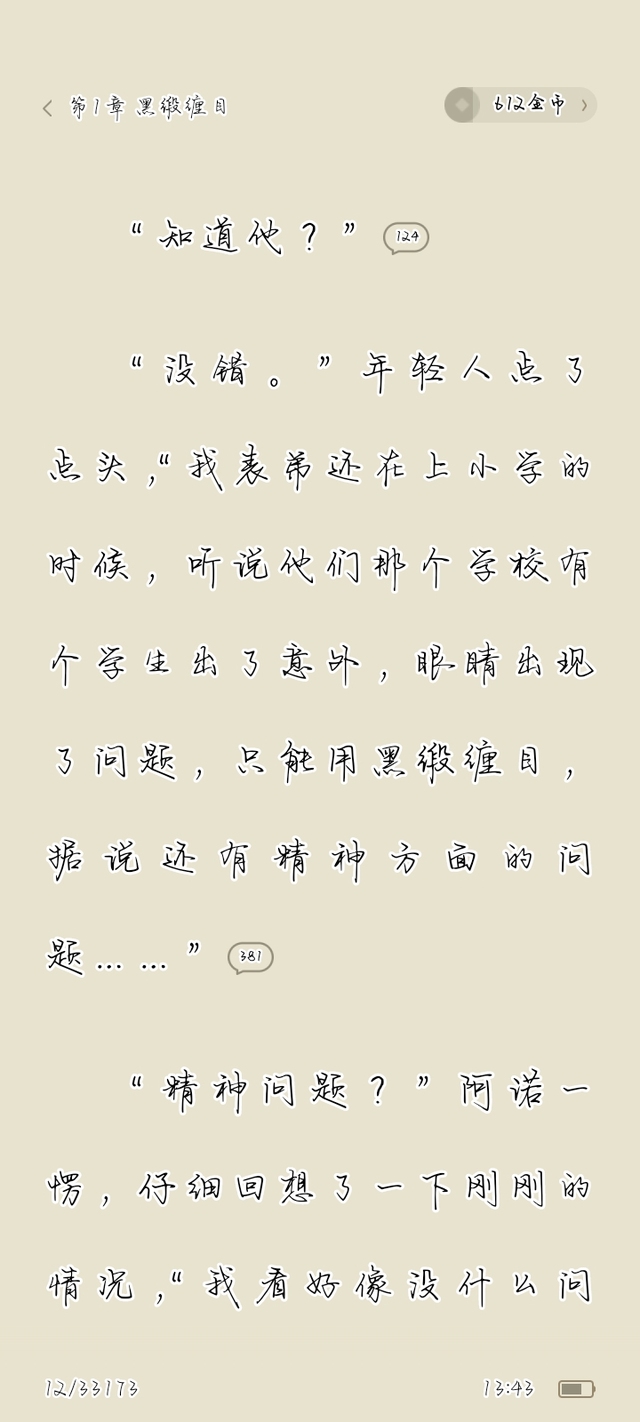 第1章 黑缎缠目
612金币
“知道他？”
124
“没错。”年轻人点了
点头,“我表弟还在上小学的
时候，听说他们那个学校有
个学生出了意外，眼睛出现
了问题，只能用黑缎缠目，
据说还有精神方面的问
题……”
381
“精神问题？”阿诺一
愣，仔细回想了一下刚刚的
情况,“我看好像没什么问
12/33173
13:43